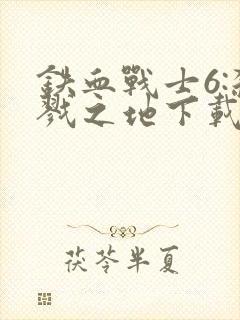 鐵血戰士6:殺
戮之地下載
茯苓半夏